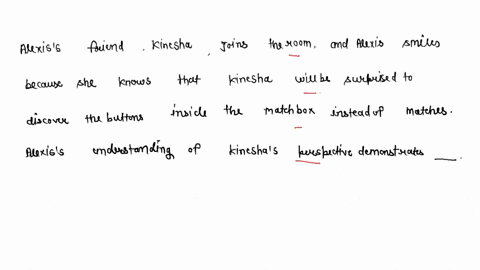 Alexis's friend, Kinesha, joins the room, and Alexis smiles
because she knows that kinesha will be surprised to
discover the buttons inside the matchbox instead of matches.
Alexis's understanding of kinesha's perspective demonstrates ___.